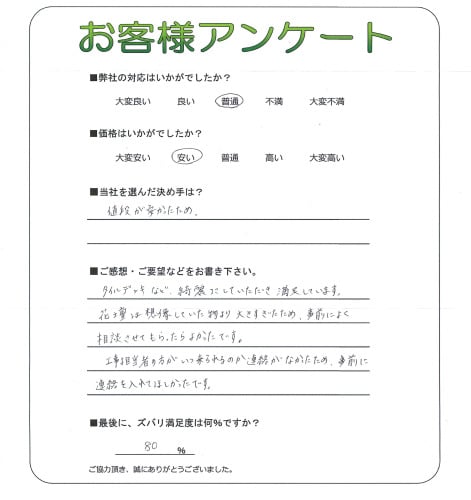 お客様アンケート
■弊社の対応はいかがでしたか？
大変良い 良い 普通 不満 大変不満
■価格はいかがでしたか？
大変安い 安い 普通 高い 大変高い
■当社を選んだ決め手は？
値段が安かったため。
■ご感想・ご要望などをお書き下さい。
タイルデッキなど、綺麗にしていただき満足しています。
花壇は想像していた物より大きすぎたため、事前によく
相談させてもらったらよかったです。
工事担当者の方がいつ来られるのか連絡がなかったため、事前に
連絡を入れてほしかったです。
■最後に、ズバリ満足度は何％ですか？
80 ％
ご協力頂き、誠にありがとうございました。